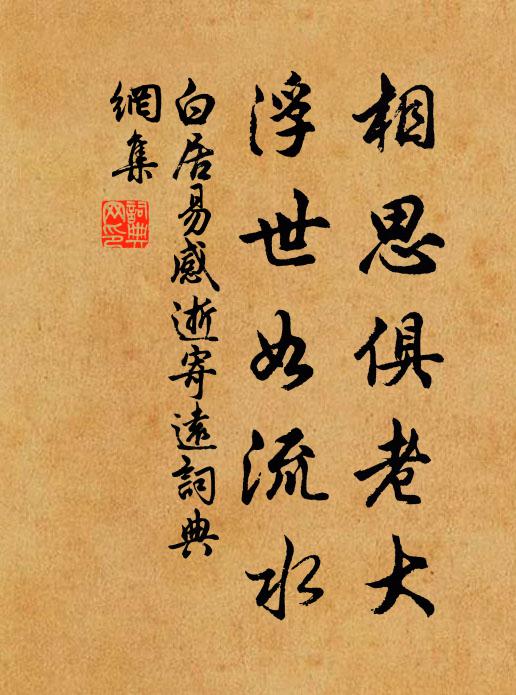 相思俱老大
浮世如流水
白居易感逝寄遠詞典
網集
詞典
网印